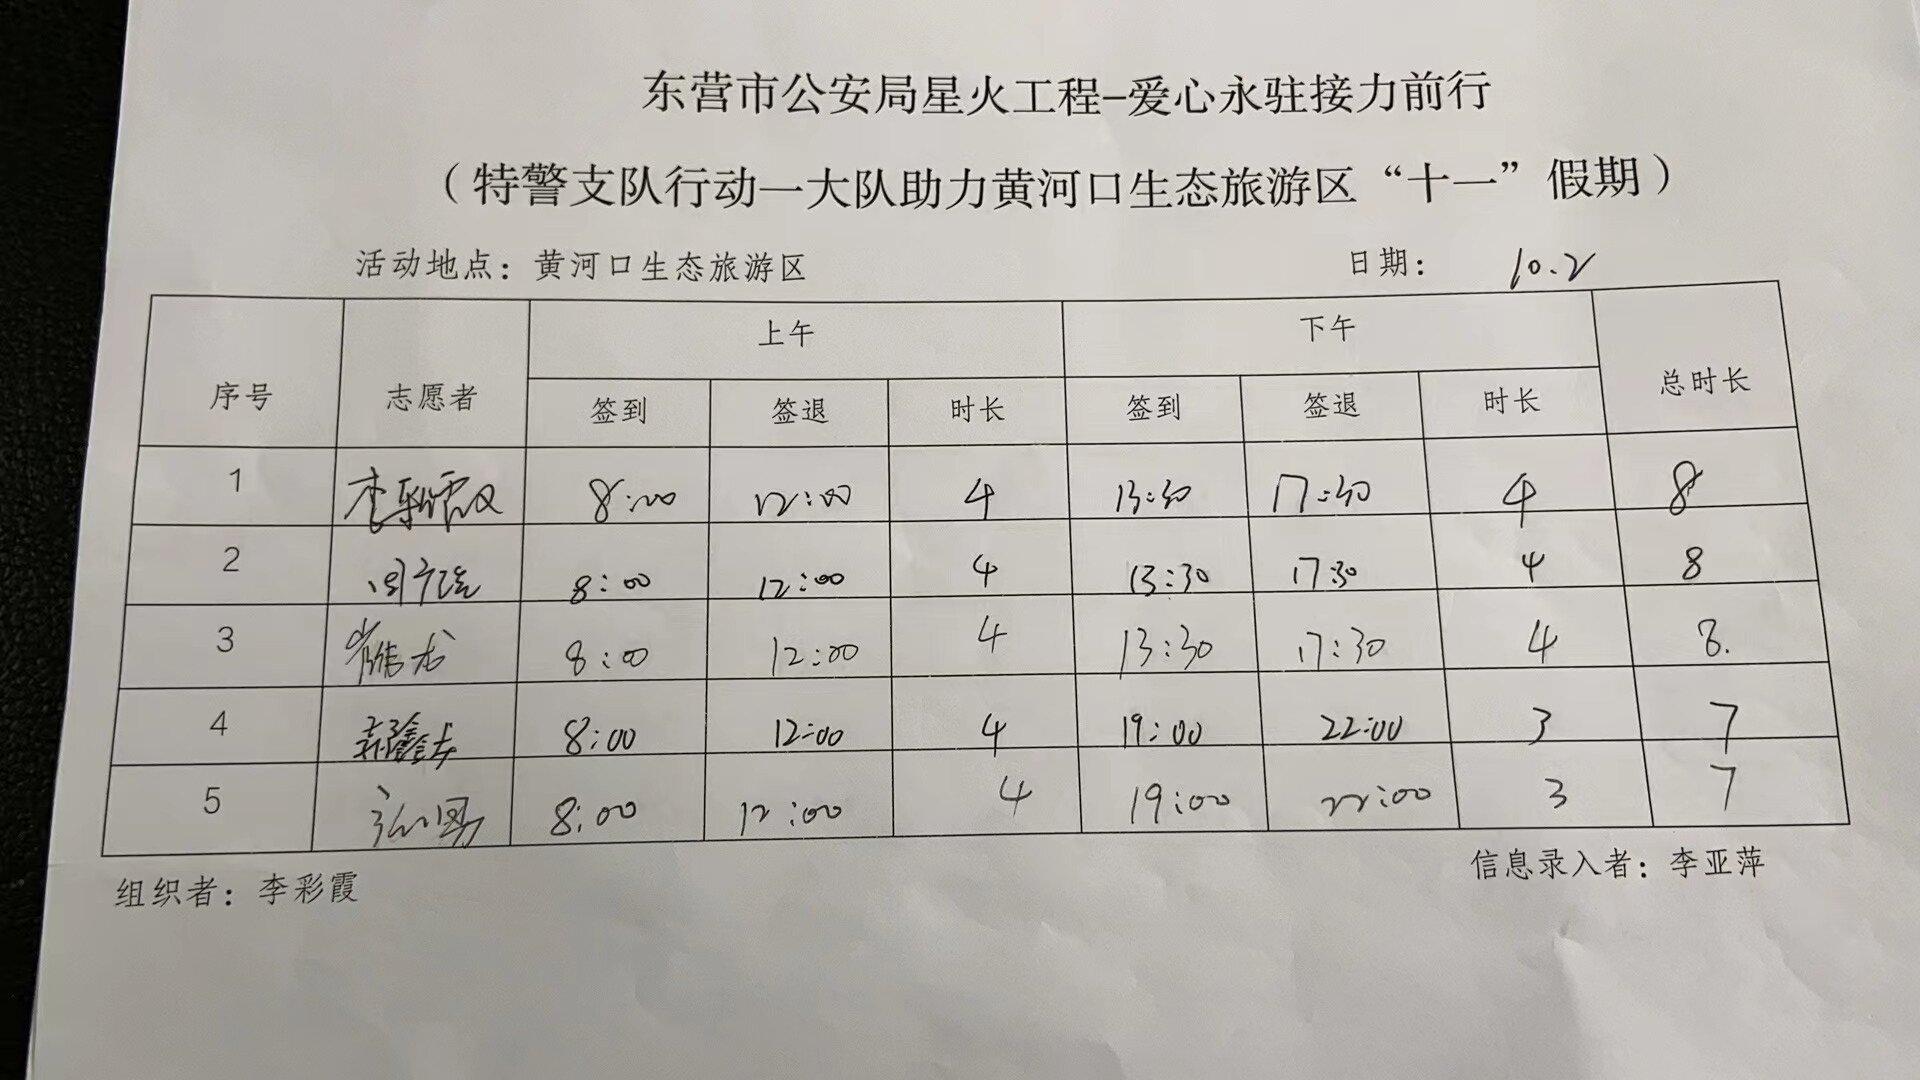 东营市公安局星火工程-爱心永驻接力前行
（特警支队行动一大队助力黄河口生态旅游区“十一”假期）
活动地点：黄河口生态旅游区 日期：10.2
序号 志愿者 上午 下午 总时长
签到 签退 时长 签到 签退 时长
1 8:00 12:00 4 13:30 17:30 4 8
2 8:00 12:00 4 13:30 17:30 4 8
3 8:00 12:00 4 13:30 17:30 4 8.
4 8:00 12:00 4 19:00 22:00 3 7
5 8:00 12:00 4 19:00 22:00 3 7
组织者：李彩霞 信息录入者：李亚萍